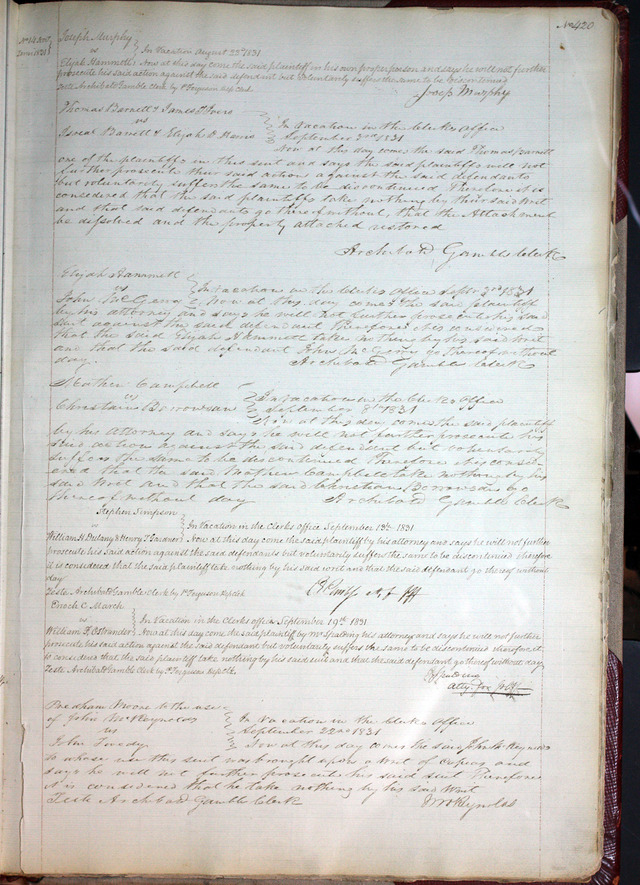 No 420
Joseph Murphy
vs
In Vacation August 22nd 1831
Elijah Hammett Now at this day come the said plaintiff in his own proper person and says he will not further
prosecute his said action against the said defendant but voluntarily suffers the same to be discontinued
Teste Archibald Gamble Clerk by P Ferguson Dep Clk
Joseph Murphy
Thomas Barnett & James
vs
In Vacation in the Clerks Office
Isaac Barnett & Elijah B Harris
September 2nd 1831
Now at this day comes the said Thomas Barnett
one of the plaintiffs in this suit and says the said plaintiffs will not
further prosecute their said action against the said defendants
but voluntarily suffers the same to be discontinued Therefore it is
considered that the said plaintiffs take nothing by their said Writ
and that said defendants go thereof without, that the Attachment
be dissolved and the property attached restored
Archibald Gamble Clerk
Elijah Hammett
vs
In Vacation in the Clerks Office Septr 2nd 1831
John McGerry Now at this day comes the said plaintiff
by his attorney and says he will not further prosecute his said
suit against the said defendant Therefore it is considered
that the said Elijah Hammett take nothing by his said Writ
and that the said defendant John McGerry go thereof without
day.
Archibald Gamble Clerk
Campbell
vs
In Vacation in the Clerks Office
Christian
September 8th 1831
Now at this day comes the said plaintiff
by his attorney and says he will not further prosecute his
said action against the said defendant but voluntarily
suffers the same to be discontinued Therefore it is consid-
ered that the said Campbell take nothing by his
said Writ and that the said Christian go
thereof without day
Archibald Gamble Clerk
Stephen Simpson
vs
In Vacation in the Clerks Office September 13th 1831
William H Delany & Henry L Gardner Now at this day come the said plaintiff by his attorney and says he will not further
prosecute his said action against the said defendants but voluntarily suffers the same to be discontinued therefore
it is considered that the said plaintiff take nothing by his said writ and that the said defendant go thereof without
day
Teste Archibald Gamble Clerk by P Ferguson Dep Clk
Enoch C March
vs
In Vacation in the Clerks office September 19th 1831
William P Ostrander Now at this day come the said plaintiff by Mr Spalding his attorney and says he will not further
prosecute his said action against the said defendant but voluntarily suffers the same to be discontinued therefore it
is considered that the said plaintiff take nothing by his said suit and that the said defendant go thereof without day
Teste Archibald Gamble Clerk by P Ferguson Dep Clk
Spalding
Atty for Plff
Moore to the use
of John McReynolds
In Vacation in the Clerks Office
vs
September 22nd 1831
John
Now at this day comes the said John McReynolds
to whose use this suit was brought upon a Writ of Capias and
says he will not further prosecute his said suit Therefore
it is considered that he take nothing by his said Writ
Teste Archibald Gamble Clerk